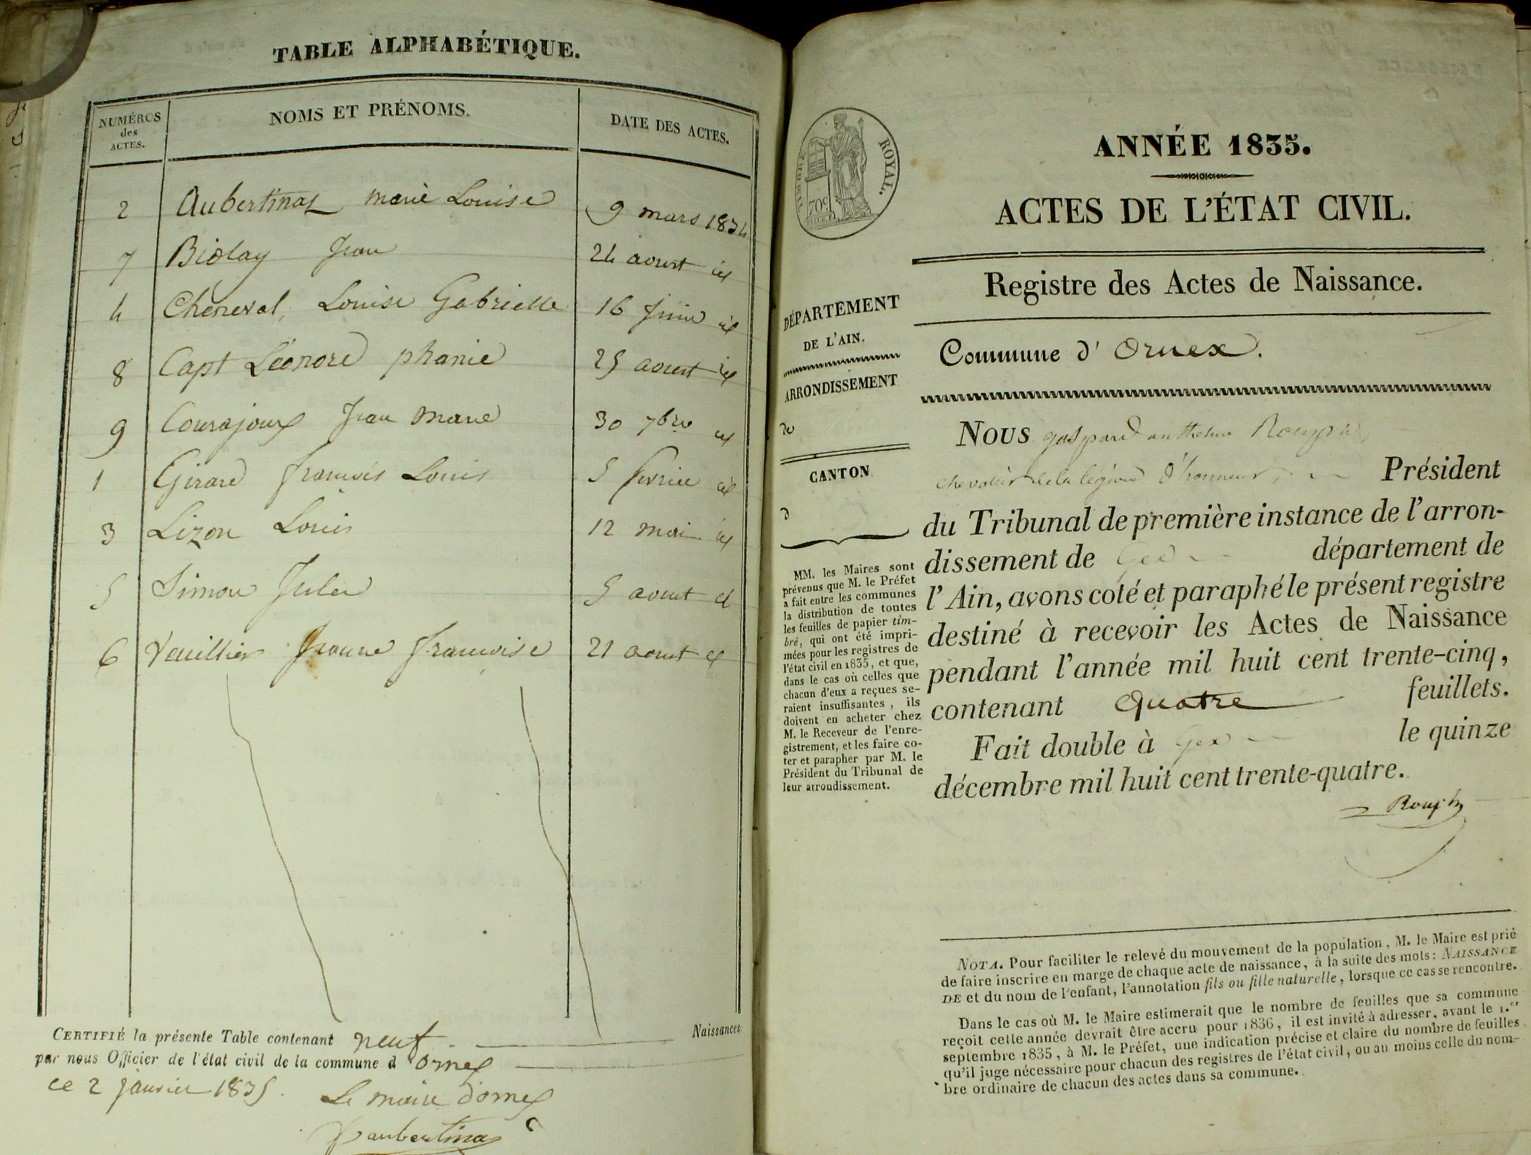 TABLE ALPHABÉTIQUE.
NUMÉROS des ACTES. NOMS ET PRÉNOMS. DATE DES ACTES.
2 Aubertinat marie Louise 9 mars 1834
7 Biolay Jean 24 aoust id
4 Cheneval Louise Gabrielle 16 Juin id
8 Capt Léonore phanie 25 aoust id
9 Courajoux Jean Marie 30 7bre id
1 Girard francois Louis 5 fevrier id
3 Lizon Louis 12 mai id
5 Simon Jules 5 aoust id
6 Vuillier Jeanne francoise 21 aoust id
CERTIFIÉ la présente Table contenant neuf Naissances
par nous Officier de l'état civil de la commune d'ornex
ce 2 janvier 1835.
Le maire d'ornex
aubertinat
TIMBRE ROYAL.
ANNÉE 1835.
ACTES DE L'ÉTAT CIVIL.
Registre des Actes de Naissance.
Commune d'Ornex.
DÉPARTEMENT
DE L'AIN.
ARRONDISSEMENT
de
CANTON
d
MM. les Maires sont
prévenus que M. le Préfet
a fait entre les communes
la distribution de toutes
les feuilles de papier tim-
bré, qui ont été impri-
mées pour les registres de
l'état civil en 1835, et que,
dans le cas où celles que
chacun d'eux a reçues se-
raient insuffisantes, ils
doivent en acheter chez
M. le Receveur de l'enre-
gistrement, et les faire co-
ter et parapher par M. le
Président du Tribunal de
leur arrondissement.
NOUS gaspard anthelme
chevalier de la légion d'honneur, Président
du Tribunal de première instance de l'arron-
dissement de Gex département de
l'Ain, avons coté et paraphé le présent registre
destiné à recevoir les Actes de Naissance
pendant l'année mil huit cent trente-cinq,
contenant quatre feuillets.
Fait double à Gex le quinze
décembre mil huit cent trente-quatre.
NOTA. Pour faciliter le relevé du mouvement de la population, M. le Maire est prié
de faire inscrire en marge de chaque acte de naissance, à la suite des mots: NAISSANCE
DE et du nom de l'enfant, l'annotation fils ou fille naturelle, lorsque ce cas se rencontre.
Dans le cas où M. le Maire estimerait que le nombre de feuilles que sa commune
reçoit cette année devrait être accru pour 1836, il est invité à adresser, avant le 1.er
septembre 1835, à M. le Préfet, une indication précise et claire du nombre de feuilles
qu'il juge nécessaire pour chacun des registres de l'état civil, ou au moins celle du nom-
bre ordinaire de chacun des actes dans sa commune.